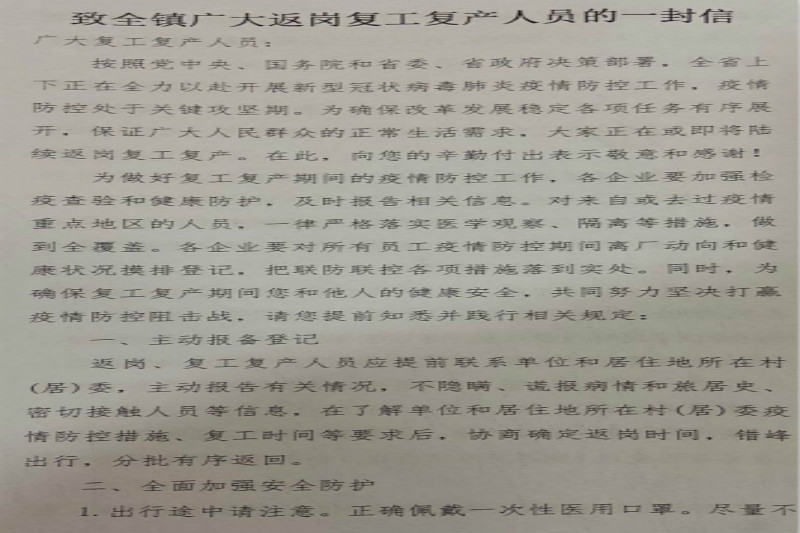 致全镇广大返岗复工复产人员的一封信
广大复工复产人员：
按照党中央、国务院和省委、省政府决策部署，全省上
下正在全力以赴开展新型冠状病毒肺炎疫情防控工作，疫情
防控处于关键攻坚期。为确保改革发展稳定各项任务有序展
开，保证广大人民群众的正常生活需求，大家正在或即将陆
续返岗复工复产。在此，向您的辛勤付出表示敬意和感谢！
为做好复工复产期间的疫情防控工作，各企业要加强检
疫查验和健康防护，及时报告相关信息。对来自或去过疫情
重点地区的人员，一律严格落实医学观察、隔离等措施，做
到全覆盖。各企业要对所有员工疫情防控期间离厂动向和健
康状况摸排登记，把联防联控各项措施落到实处。同时，为
确保复工复产期间您和他人的健康安全，共同努力坚决打赢
疫情防控阻击战，请您提前知悉并践行相关规定：
一、主动报备登记
返岗、复工复产人员应提前联系单位和居住地所在村
(居)委，主动报告有关情况，不隐瞒、谎报病情和旅居史、
密切接触人员等信息，在了解单位和居住地所在村(居)委疫
情防控措施、复工时间等要求后，协商确定返岗时间，错峰
出行，分批有序返回。
二、全面加强安全防护
1.出行途中请注意。正确佩戴一次性医用口罩。尽量不